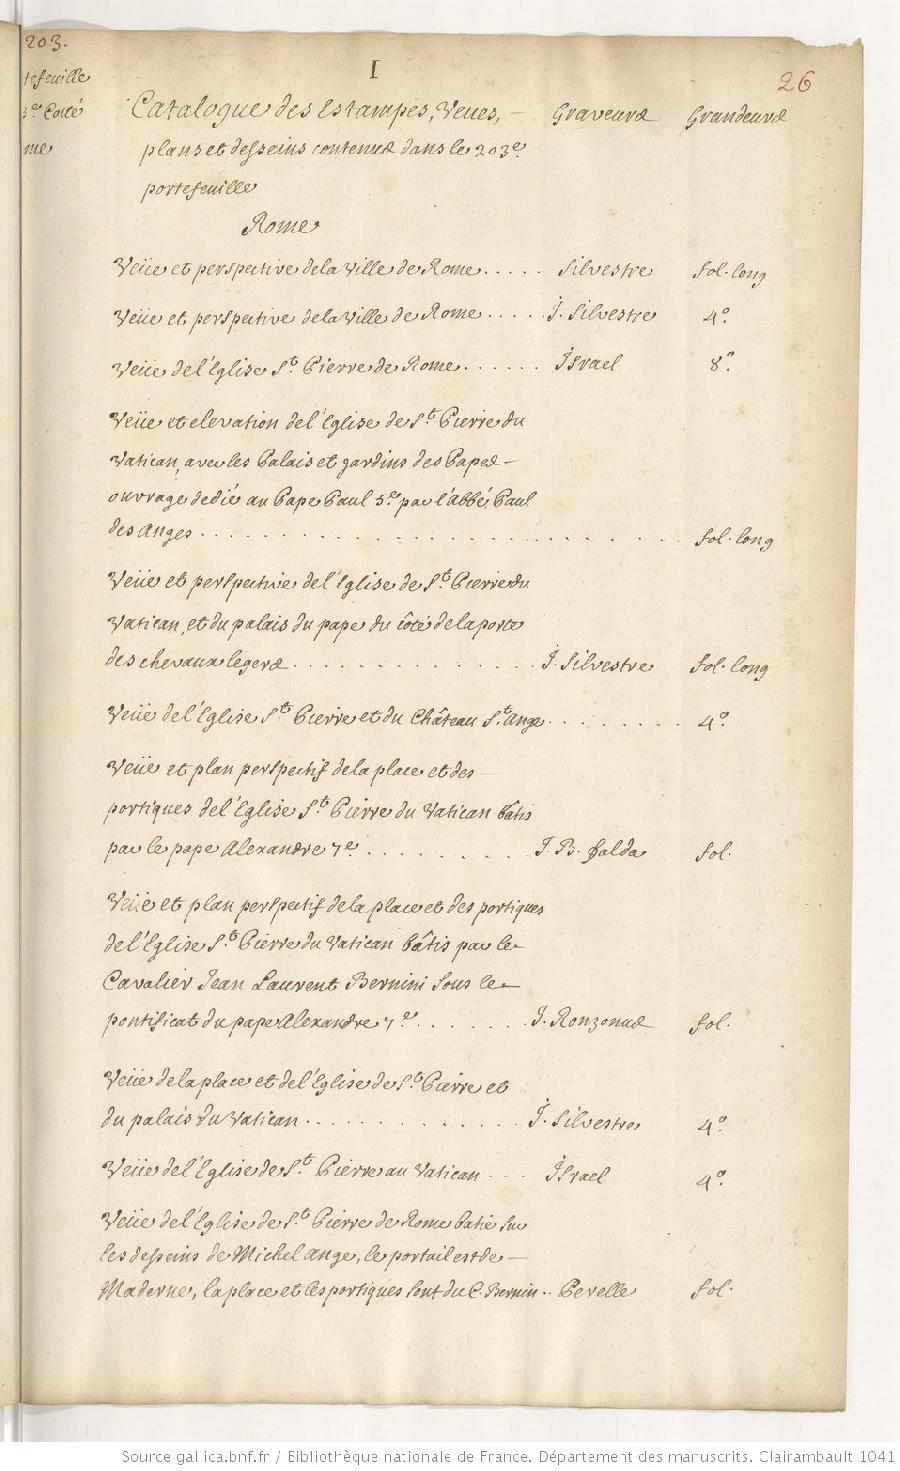 203.
I
26
tefeuille
3.e Cotté
me
Catalogue des Estampes, Veues, — Graveurs Grandeurs
plans et desseins contenus dans le 203e.
portefeuille
Rome
Veüe et perspective de la Ville de Rome..... Silvestre fol. long
Veüe et perspective de la Ville de Rome..... I. Silvestre 4o.
Veüe de l'Eglise St. Pierre de Rome...... Israel 8o.
Veüe et elevation de l'Eglise de St. Pierre du
Vatican, avec les Palais et jardins des Papes —
ouvrage dedié au Pape Paul 5.e par l'Abbé Paul
des Anges........................... fol. long
Veüe et perspective de l'Eglise de St. Pierre du
Vatican, et du palais du pape du côté de la porte
des chevaux legers............... I. Silvestre fol. long
Veüe de l'Eglise St. Pierre et du Château St. Ange......... 4o.
Veüe et plan perspectif de la place et des
portiques de l'Eglise St. Pierre du Vatican bâtis
par le pape Alexandre 7e......... J. B. falda fol.
Veüe et plan perspectif de la place et des portiques
de l'Eglise St. Pierre du Vatican bâtis par le
Cavalier Jean Laurent Bernini sous le
pontificat du pape Alexandre 7e....... J. Ronzonus fol.
Veüe de la place et de l'Eglise de St. Pierre et
du palais du Vatican............. I. Silvestre 4o.
Veüe de l'Eglise de St. Pierre au Vatican... Israel 4o.
Veüe de l'Eglise de St. Pierre de Rome batie sur
les desseins de Michel ange, le portail est de —
Maderne, la place et les portiques sont du C. Bernin.. Perelle fol.
Source gallica.bnf.fr / Bibliothèque nationale de France. Département des manuscrits. Clairambault 1041